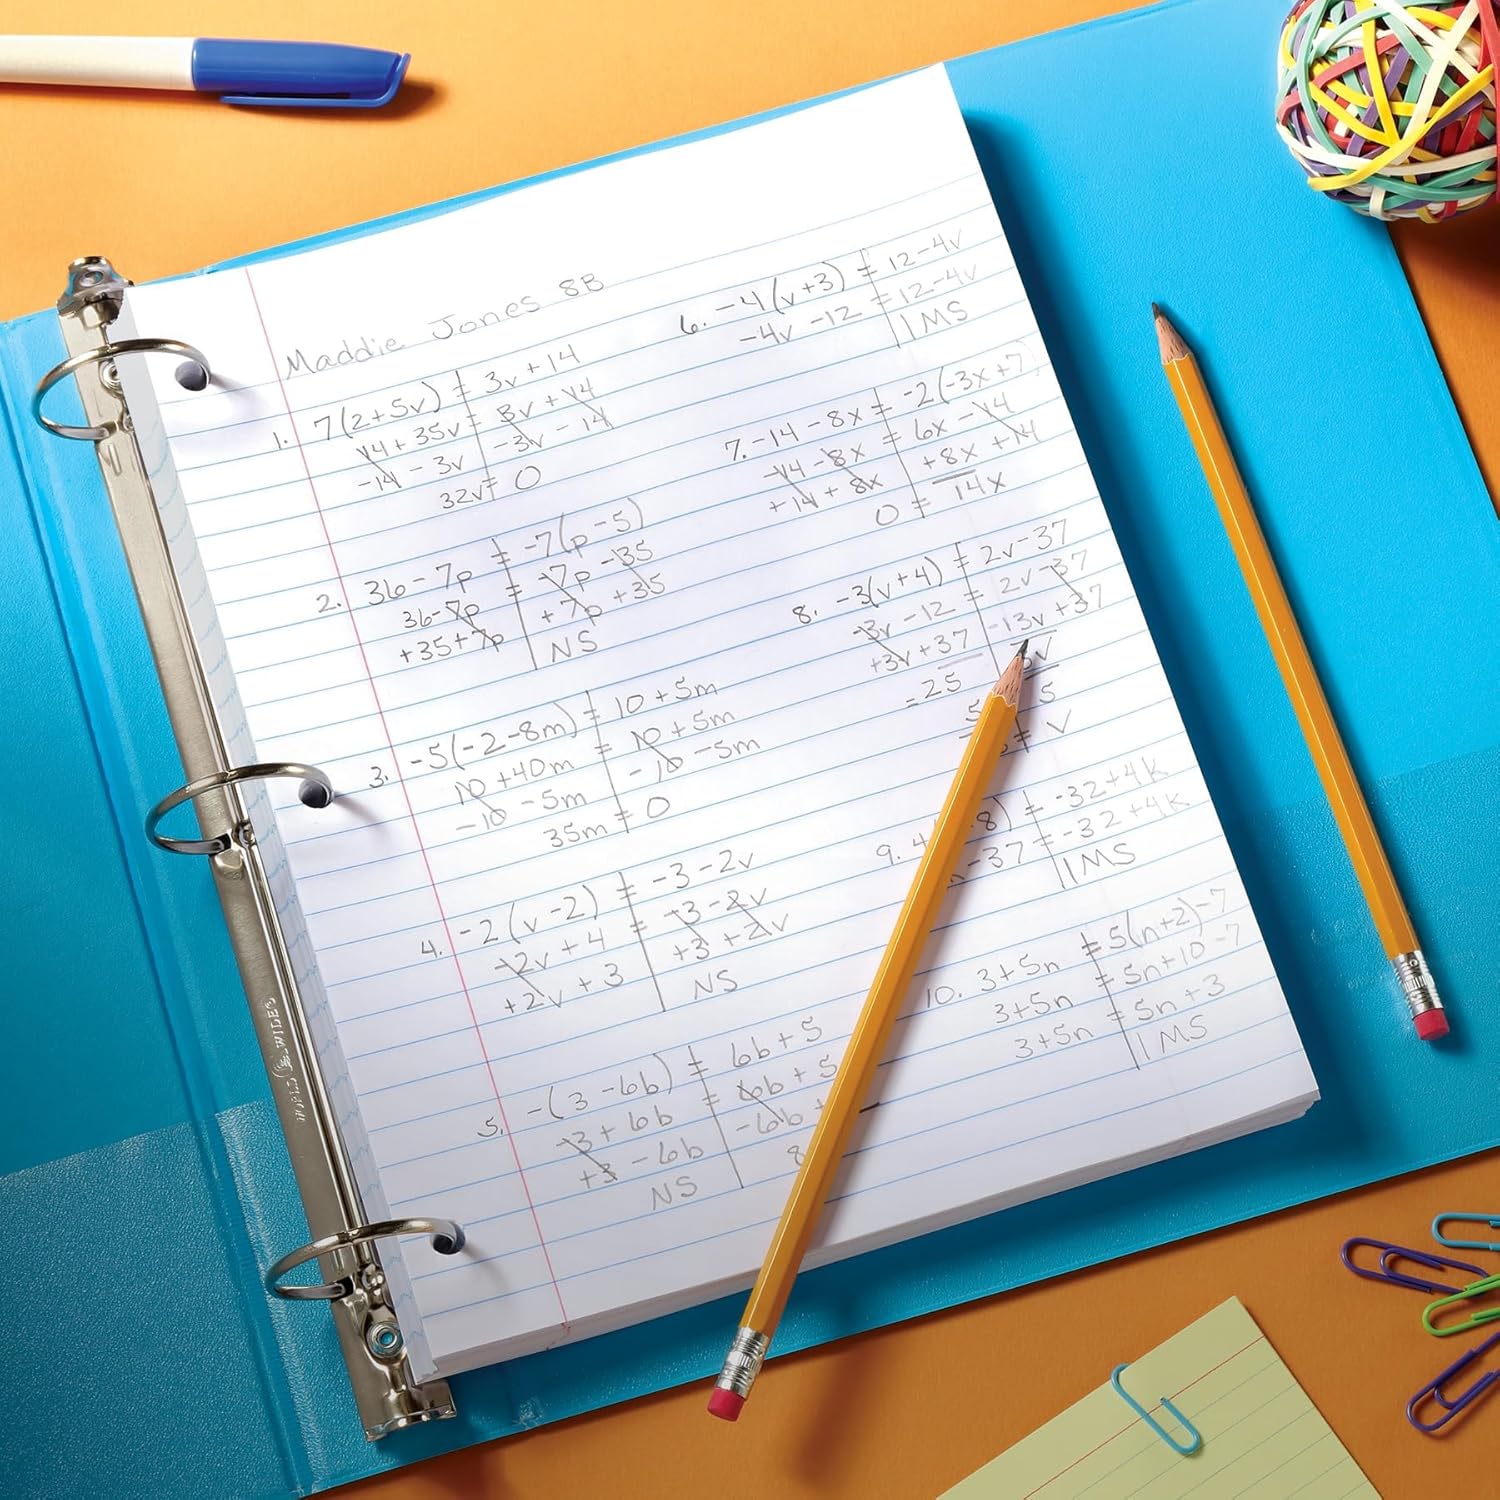 Maddie Jones 8B
1. 7(2+5v) = 3v+14
14+35v = 3v+14
-14-3v -3v-14
32v = 0
2. 36-7p = -7(p-5)
36-7p = -7p-35
+35+7p +7p+35
NS
3. -5(-2-8m) = 10+5m
10+40m = 10+5m
-10-5m -10-5m
35m = 0
4. -2(v-2) = -3-2v
-2v+4 = -3-2v
+2v+3 +3+2v
NS
5. -(3-6b) = 6b+5
-3+6b = 6b+5
+3-6b -6b+
8
NS
6. -4(v+3) = 12-4v
-4v-12 = 12-4v
IMS
7. -14-8x = -2(-3x+7)
-14-8x = 6x-14
+14+8x +8x+14
0 = 14x
8. -3(v+4) = 2v-37
-3v-12 = 2v-37
+3v+37 -13v+37
=25 5v
5 5
= v
9. 4( -8) = -32+4k
-37 = -32+4k
IMS
10. 3+5n = 5(n+2)-7
3+5n = 5n+10-7
3+5n = 5n+3
IMS
WORLD WIDE®